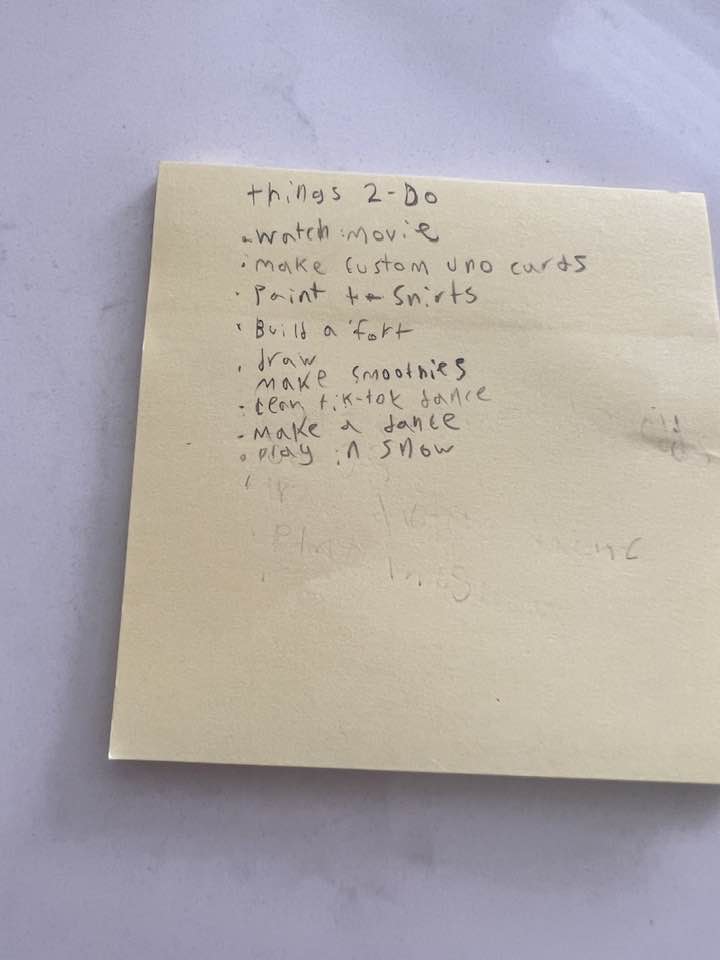 things 2-Do
. watch movie
. make custom uno cards
. Paint t-shirts
. Build a fort
. draw
make smoothies
. lean tik-tok dance
. make a dance
. play in snow